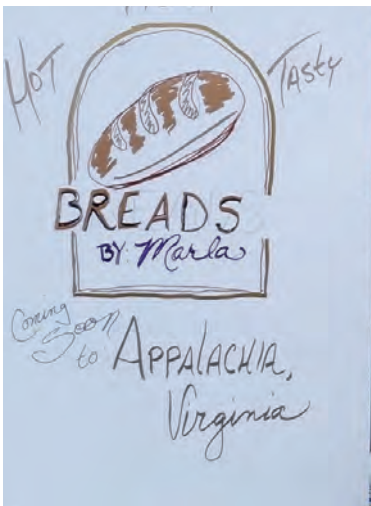 HOT
TASty
BREADS
BY: Marla
Coming
Soon
to APPALACHIA,
Virginia